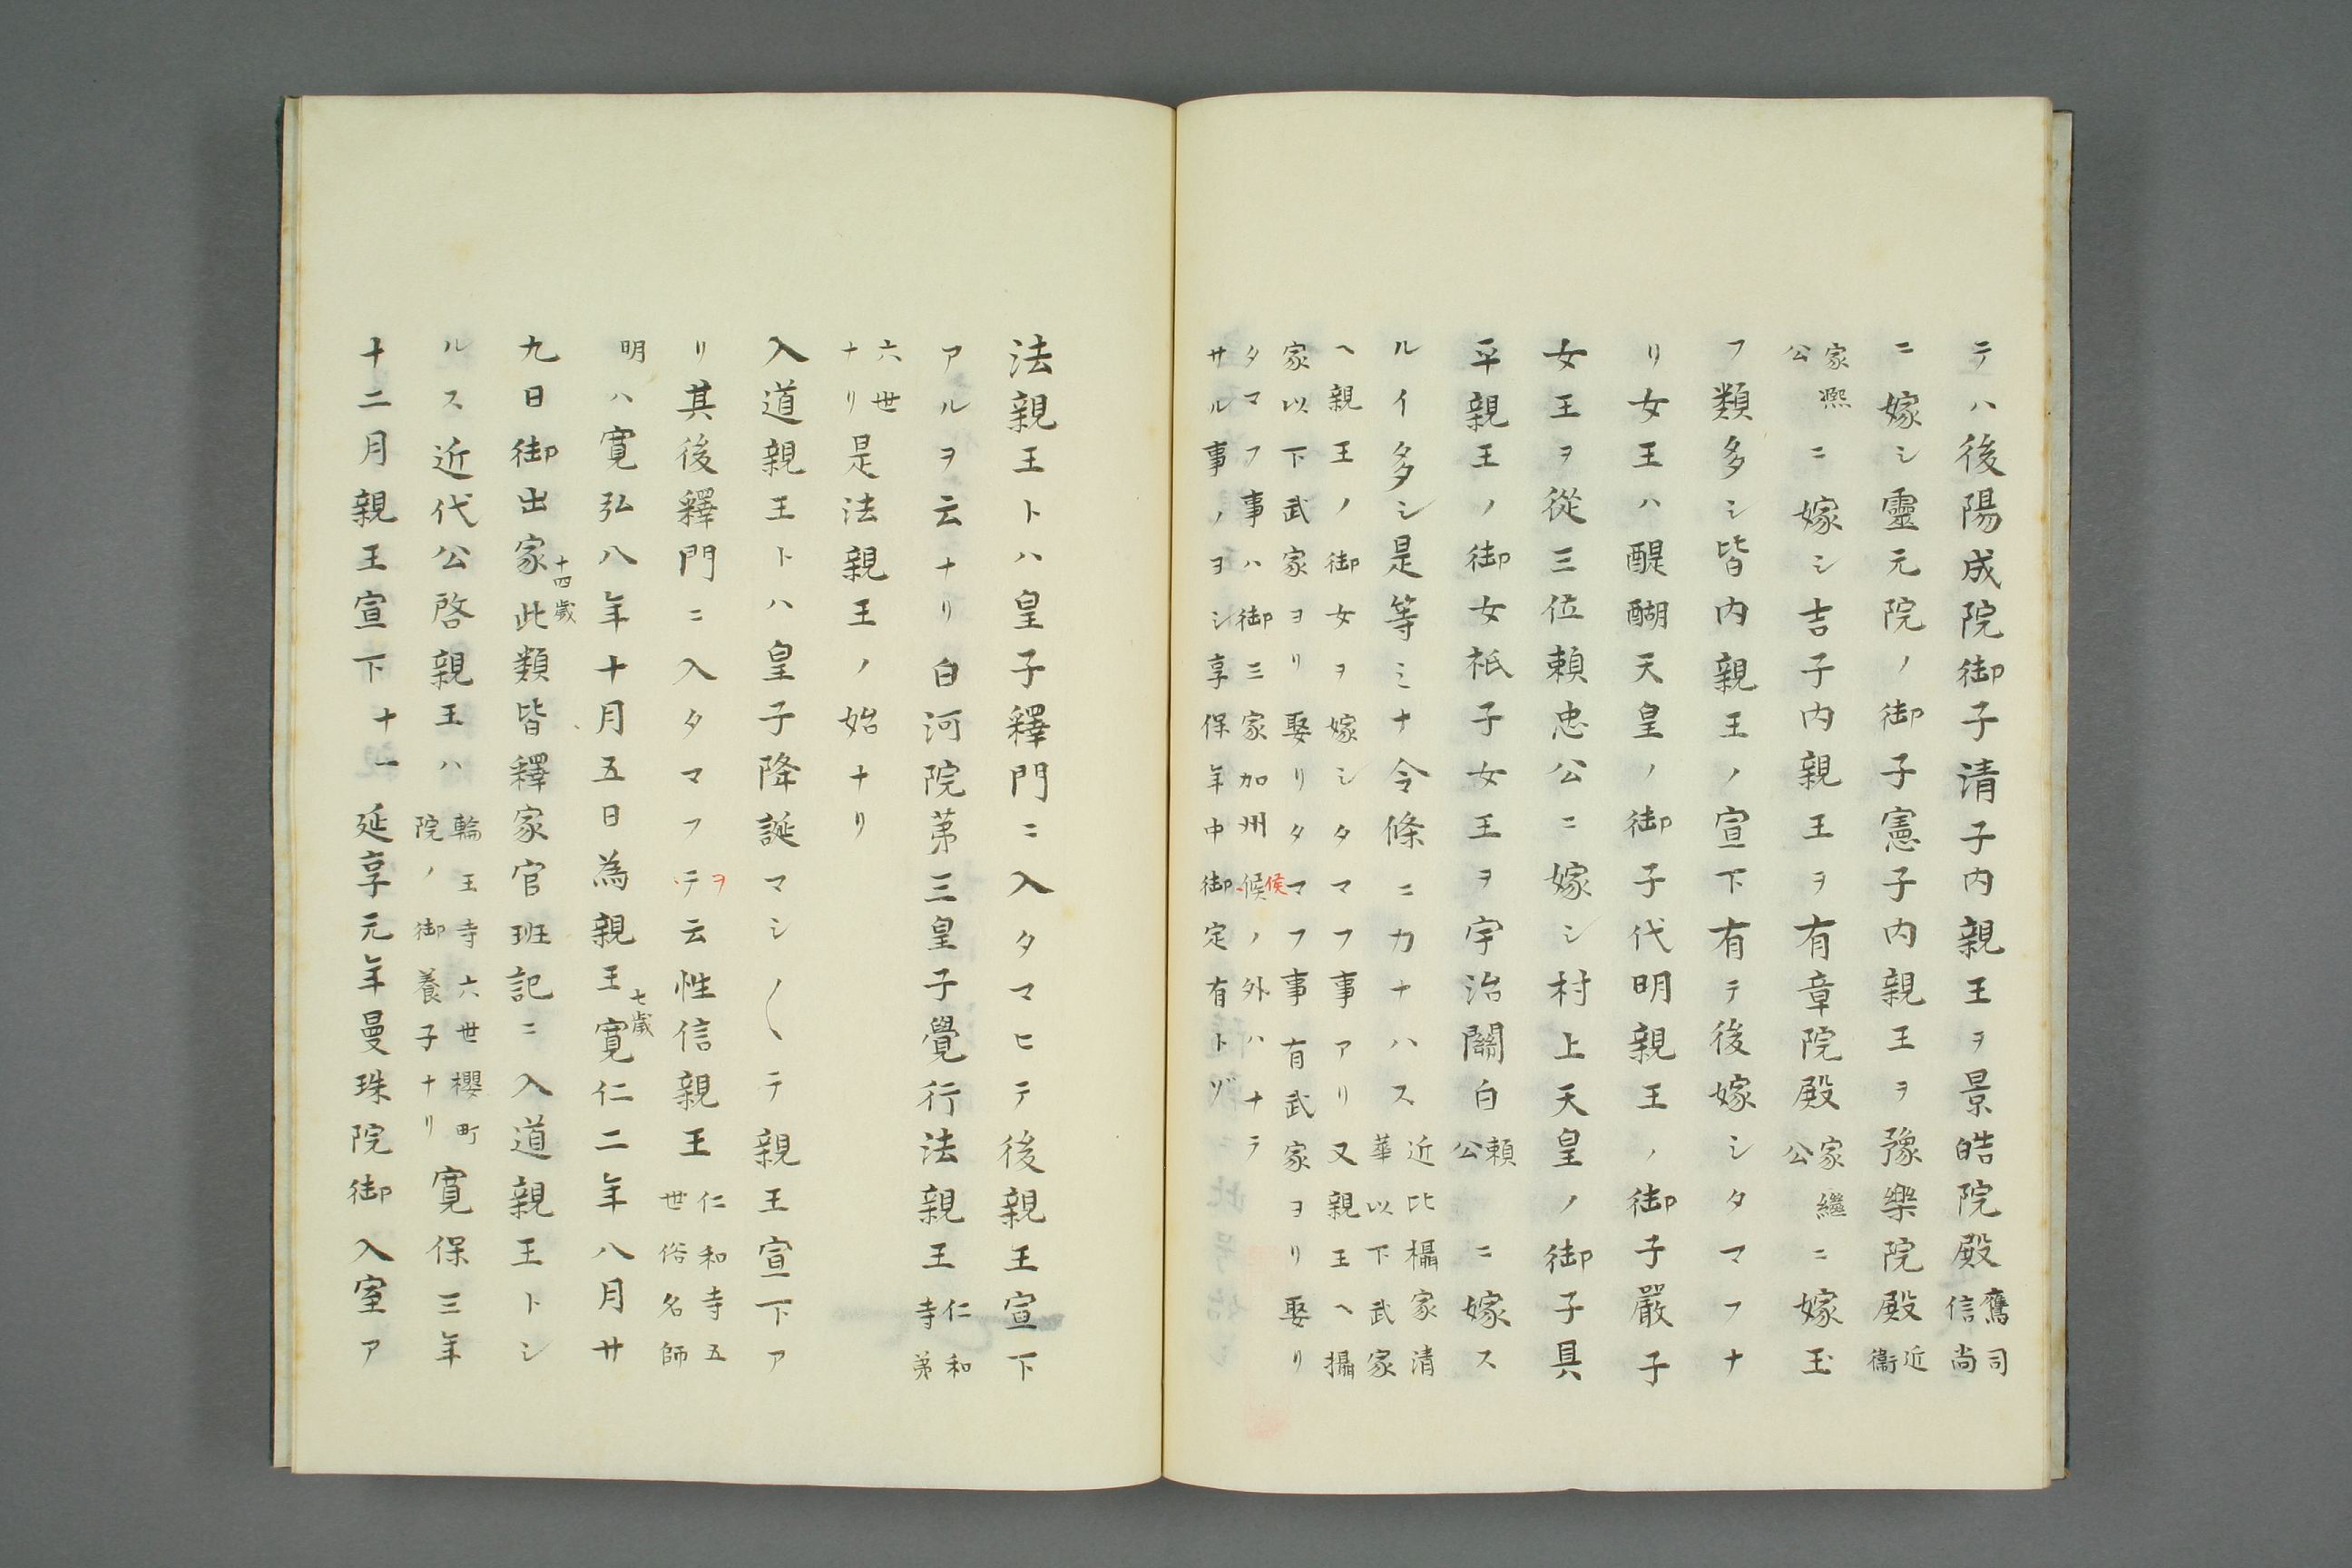 テハ後陽成院御子清子内親王ヲ景皓院殿鷹司信尚
ニ嫁シ靈元院ノ御子憲子内親王ヲ豫樂院殿近衞
家熈公ニ嫁シ吉子内親王ヲ有章院殿家繼公ニ嫁玉
フ類多シ皆内親王ノ宣下有テ後嫁シタマフナ
リ女王ハ醍醐天皇ノ御子代明親王ノ御子嚴子
女王ヲ從三位頼忠公ニ嫁シ村上天皇ノ御子具
平親王ノ御女祇子女王ヲ宇治關白頼公ニ嫁ス
ルイ多シ是等ミナ令條ニカナハス近比攝家清華以下武家
ヘ親王ノ御女ヲ嫁シタマフ事アリ又親王ヘ攝
家以下武家ヨリ娶リタマフ事有武家ヨリ娶リ
タマフ事ハ御三家加州候侯ノ外ハナラ
サル事ノヨシ享保年中御定有トゾ
法親王トハ皇子釋門ニ入タマヒテ後親王宣下
アルヲ云ナリ白河院第三皇子覺行法親王仁和寺第
六世ナリ是法親王ノ始ナリ
入道親王トハ皇子降誕マシ〱テ親王宣下ア
リ其後釋門ニ入タマフテヲ云性信親王仁和寺五世俗名師
明ハ寛弘八年十月五日為親王七歳寛仁二年八月廿
九日御出家十四歳此類皆釋家官班記ニ入道親王トシ
ルス近代公啓親王ハ輪王寺六世櫻町院ノ御養子ナリ寛保三年
十二月親王宣下十一延享元年曼珠院御入室ア